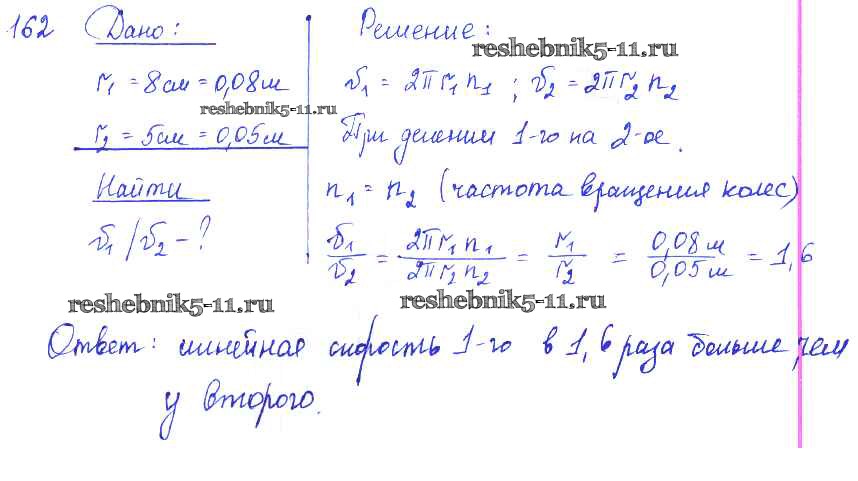 162 Дано:
r₁ = 8 см = 0,08 м
reshebnik5-11.ru
r₂ = 5 см = 0,05 м
Найти
v₁/v₂ - ?
Решение:
reshebnik5-11.ru
v₁ = 2πr₁n₁ ; v₂ = 2πr₂n₂
При делении 1-го на 2-ое.
n₁ = n₂ (частота вращения колес)
v₁/v₂ = 2πr₁n₁/2πr₂n₂ = r₁/r₂ = 0,08 м/0,05 м = 1,6
reshebnik5-11.ru
reshebnik5-11.ru
Ответ: линейная скорость 1-го в 1,6 раза больше чем
у второго.